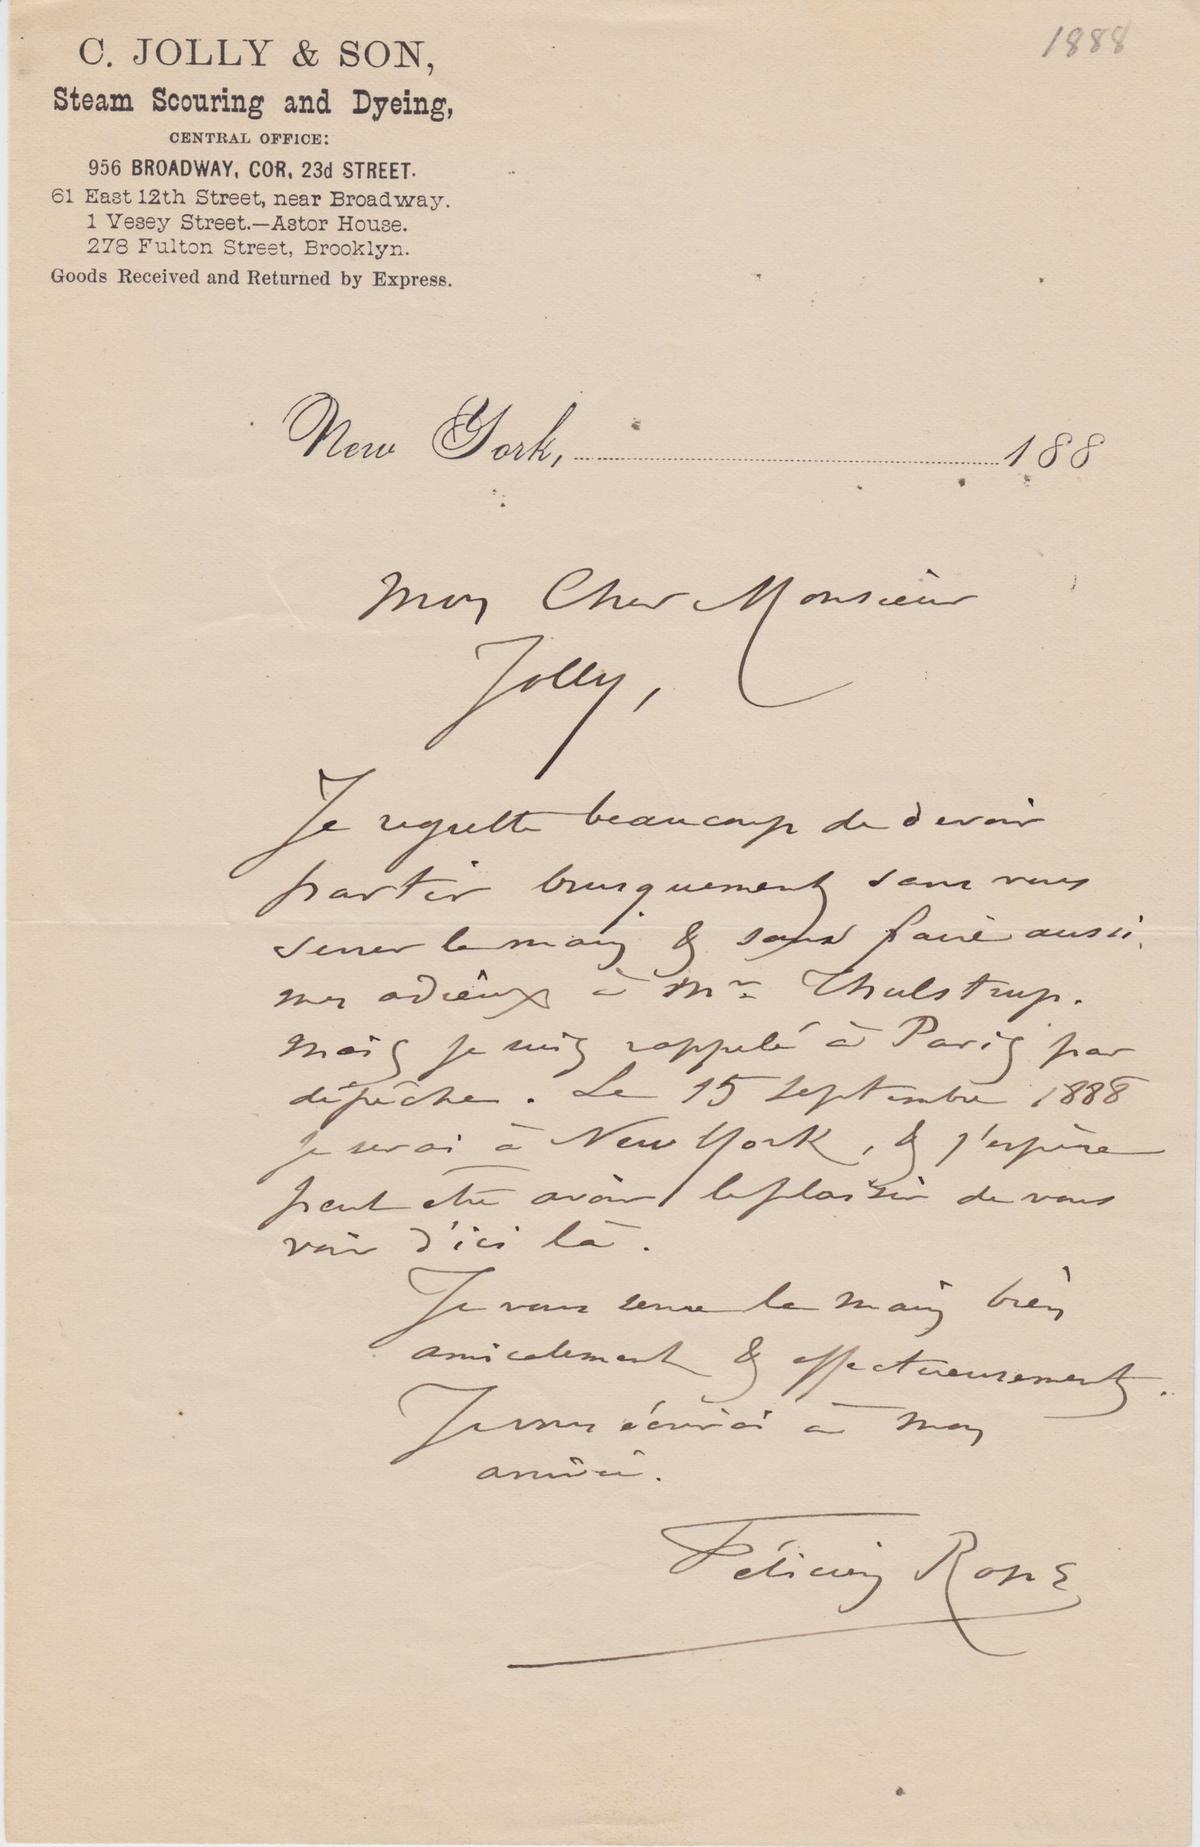 1888
C. JOLLY & SON,
Steam Scouring and Dyeing,
CENTRAL OFFICE:
956 BROADWAY, COR, 23d STREET.
61 East 12th Street, near Broadway.
1 Vesey Street.—Astor House.
278 Fulton Street, Brooklyn.
Goods Received and Returned by Express.
New York, 188
Mon Cher Monsieur
Jolly,
Je regrette beaucoup de devoir
partir brusquement sans vous
serrer la main & sans faire aussi
mes adieux à Mr Thulstrup.
Mais je suis rappelé à Paris par
dépêche. Le 15 septembre 1888
je serai à New York, & j'espère
peut etre avoir le plaisir de vous
voir d'ici là.
Je vous serre la main bien
amicalement & affectueusement.
Je vous écrirai à mon
arrivée.
Félicien Rops